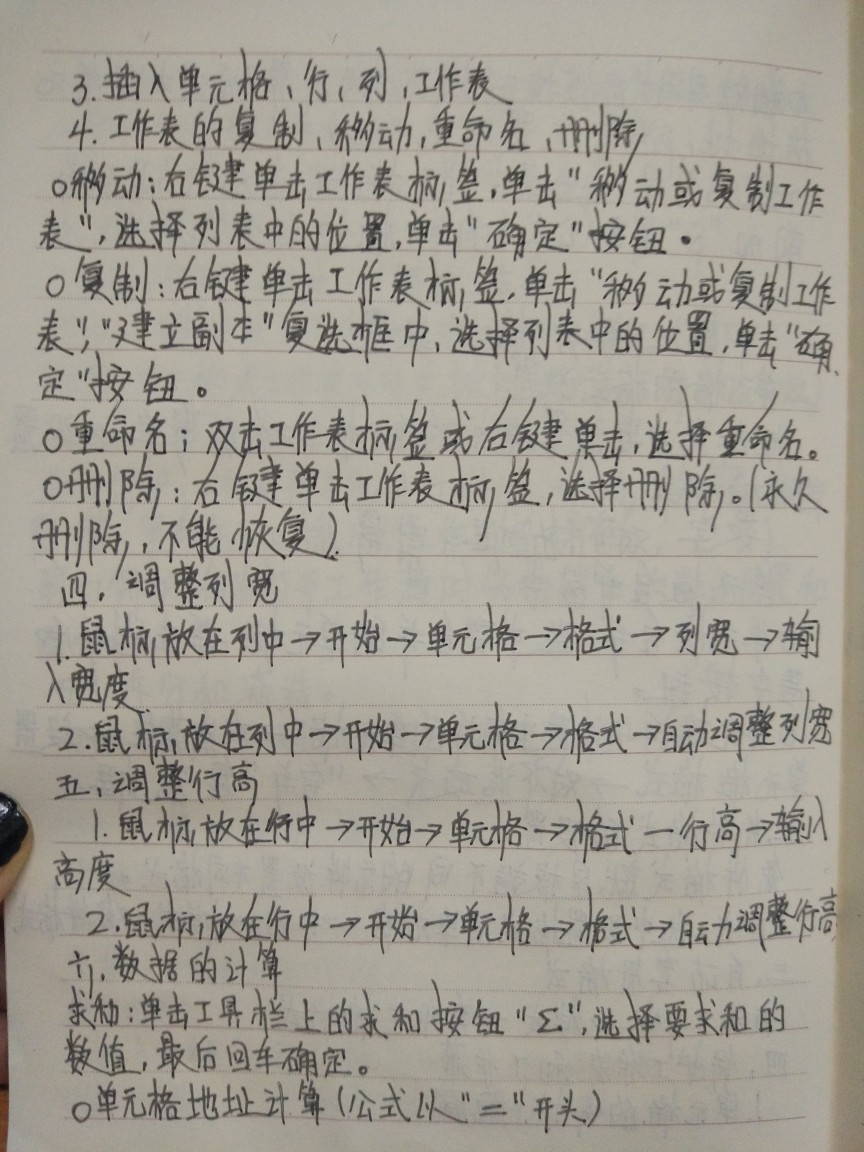 3.插入单元格、行、列、工作表
4.工作表的复制、移动、重命名、删除
○移动:右键单击工作表标签,单击"移动或复制工作
表",选择列表中的位置,单击"确定"按钮。
○复制:右键单击工作表标签,单击"移动或复制工作
表","建立副本"复选框中,选择列表中的位置,单击"确
定"按钮。
○重命名:双击工作表标签或右键单击,选择重命名。
○删除:右键单击工作表标签,选择删除。(永久
删除,不能恢复)
四、调整列宽
1.鼠标放在列中→开始→单元格→格式→列宽→输
入宽度
2.鼠标放在列中→开始→单元格→格式→自动调整列宽
五、调整行高
1.鼠标放在行中→开始→单元格→格式—行高→输入
高度
2.鼠标放在行中→开始→单元格→格式→自动调整行高
六、数据的计算
求和:单击工具栏上的求和按钮"Σ",选择要求和的
数值,最后回车确定。
○单元格地址计算(公式以"="开头)